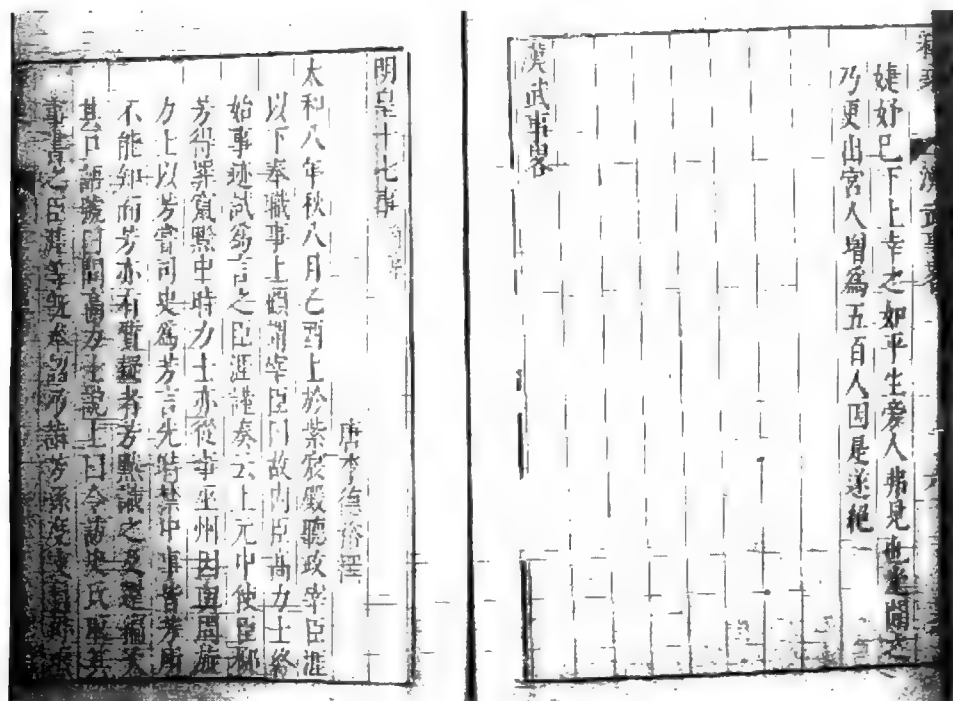 漢武事畧
婕妤已下上幸之如平生旁人弗見也
乃更出宮人增爲五百人因是遂絕
漢武事畧
明皇十七事
唐李德裕譔
太和八年秋八月乙酉上於紫宸殿聽政宰臣涯
以下奉職事上顧謂宰臣曰故內臣高力士終
始事迹試爲言之臣涯謹奏云上元中使臣柳
芳得罪竄黔中時力士亦從事巫州因與周旋
力士以芳嘗司史爲芳言先時禁中事皆芳所
不能知而芳亦有質疑者芳默識之及還編次
號曰問高力士說上曰令訪史氏取其
書臣涯等既奉詔乃
芳孫度支員外郎